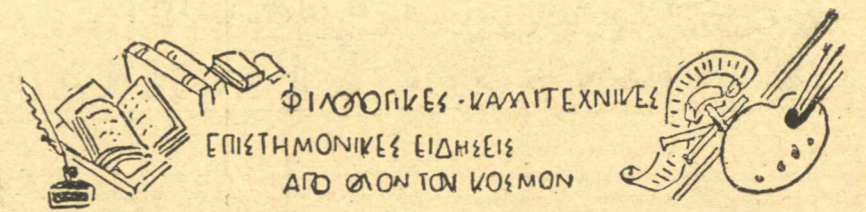 ΦΙΛΟΛΟΓΙΚΕΣ · ΚΑΛΛΙΤΕΧΝΙΚΕΣ
ΕΠΙΣΤΗΜΟΝΙΚΕΣ ΕΙΔΗΣΕΙΣ
ΑΠΟ ΟΛΟΝ ΤΟΝ ΚΟΣΜΟΝ